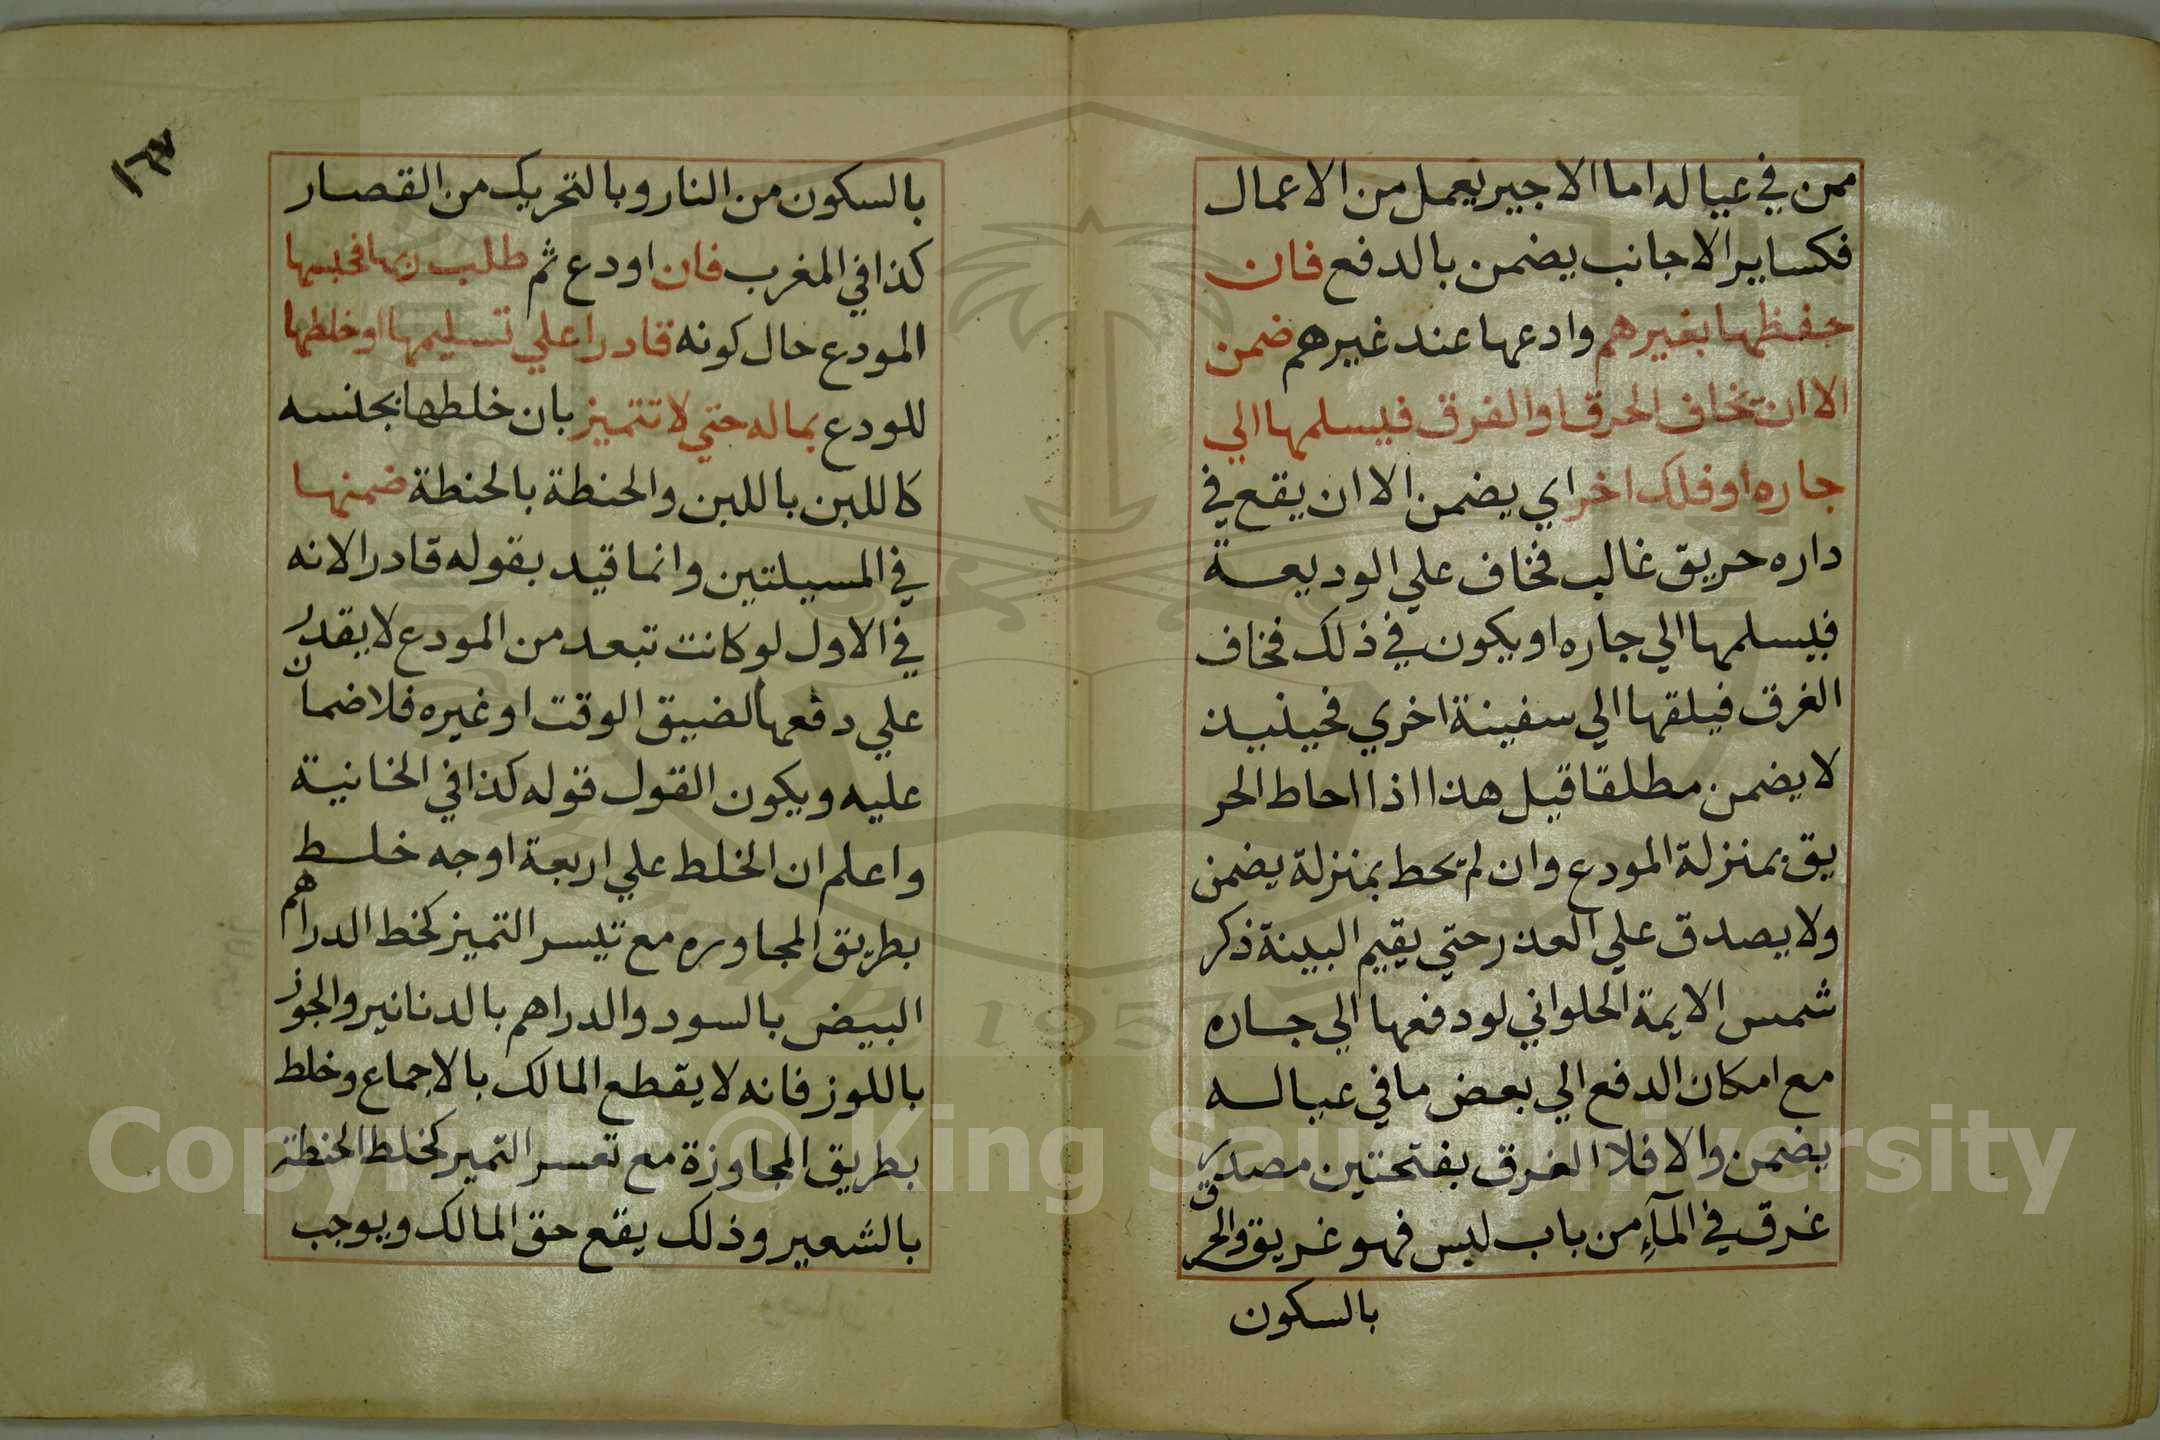 ممن في عياله اما الاجير يعمل من الاعمال
فكساير الاجانب يضمن بالدفع فان
حفظها بغيرهم وادعها عند غيرهم ضمن
الا ان يخاف الحرق او الغرق فيسلمها الي
جاره او فلك اخر اي يضمن الا ان يقع في
داره حريق غالب فخاف علي الوديعة
فيسلمها الي جاره او يكون في ذلك فخاف
الغرق فيلقها الي سفينة اخري فحينيذ
لا يضمن مطلقا قيل هذا اذا احاط الحر
يق بمنزلة المودع وان لم يحط بمنزلة يضمن
ولا يصدق علي العذر حتي يقيم البينة ذكر
شمس الايمة الحلواني لو دفعها الي جاره
مع امكان الدفع الي بعض ما في عياله
يضمن والا فلا الغرق بفتحتين مصدر
غرق في المآء من باب ليس فهو غريق والحرق
بالسكون
١٦٧
بالسكون من النار وبالتحريك من القصار
كذا في المغرب فان اودع ثم طلب ربها فحبسها
المودع حال كونه قادرا علي تسليمها او خلطها
للودع بماله حتي لا تتميز بان خلطها بجنسه
كاللبن باللبن والحنطة بالحنطة ضمنها
في المسيلتين وانما قيد بقوله قادرا لانه
في الاول لو كانت تبعد من المودع لا يقدر
علي دفعها لضيق الوقت او غيره فلا ضمان
عليه ويكون القول قوله كذا في الخانية
واعلم ان الخلط علي اربعة اوجه خلط
بطريق المجاوره مع تيسر التميز كخط الدراهم
البيض بالسود والدراهم بالدنانير والجوز
باللوز فانه لا يقطع المالك بالاجماع وخلط
بطريق المجاوزة مع تعسر التميز كخلط الحنطة
بالشعير وذلك يقع حق المالك ويوجب
Copyright © King Saud University
1957